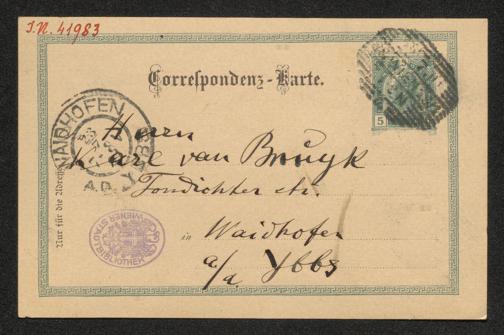 I.N. 41983
Correspondenz-Karte.
5
WAIDHOFEN
A.D. YBBS
Herrn
Carl van Bruyk
Tondichter etc.
in Waidhofen
a/d Ybbs
Nur für die Adresse
WIENER STADTBIBLIOTHEK